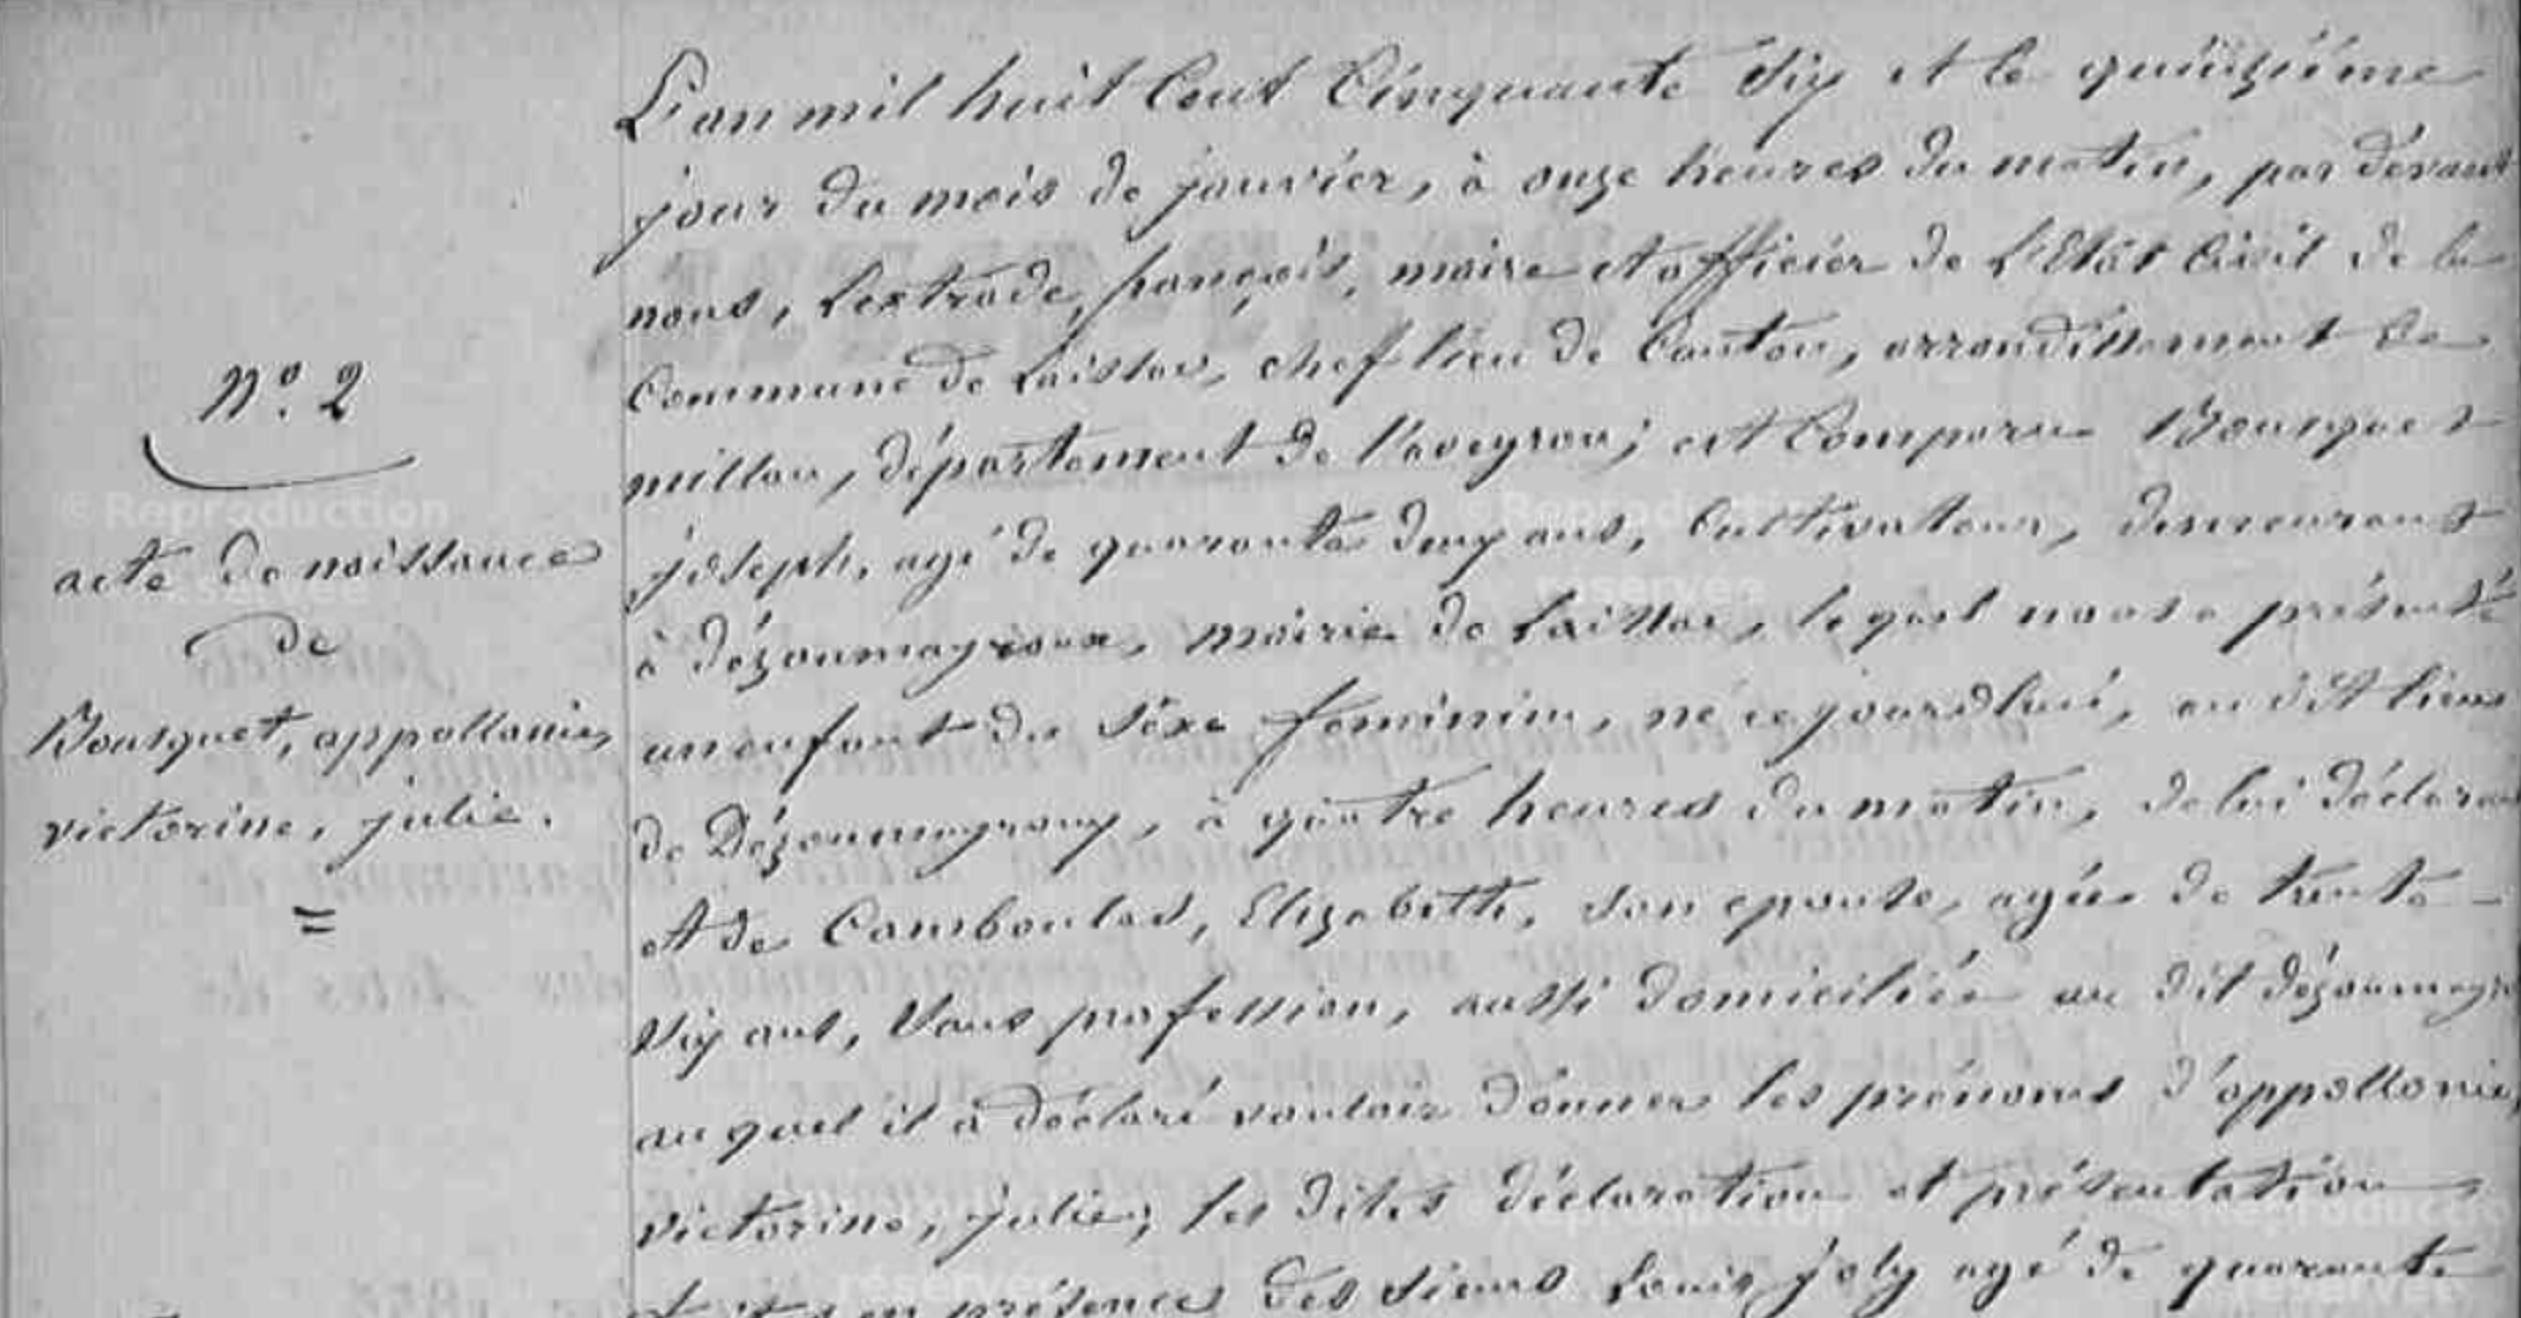 N.º 2
acte de naissance
de
Bousquet, appollonie,
victorine, julie.
=
L'an mil huit Cent Cinquante Six et le quinzième
jour du mois de janvier, à onze heures du matin, par dévant
nous, Lextrade, françois, maire et officier de L'Etat Civil de la
Commune de Laissac, chef lieu de Canton, arrondissement de
millau, département de l'aveyron; est Comparu Bousquet
joseph, agé de quarante deux ans, Cultivateur, demeurant
à dézoumayroux, mairie de Laissac, le quel nous a présenté
un enfant du séxe feminin, né ce jourd'hui, au dit lieu
de Dézoumayroux, à quatre heures du matin, de lui déclarant
et de Camboulas, Elizabeth, son epouse, agée de trente-
Six ans, sans profession, aussi domiciliée au dit dézoumayr
au quel il a déclaré vouloir donner les prénoms d'appollonie,
victorine, julie; les dites déclaration et présentation
faites en présence des sieurs Louis joly agé de quarante
© Reproduction
réservée
Reproduction
réservée
Reproduction
réservée
Reproduction
réservée